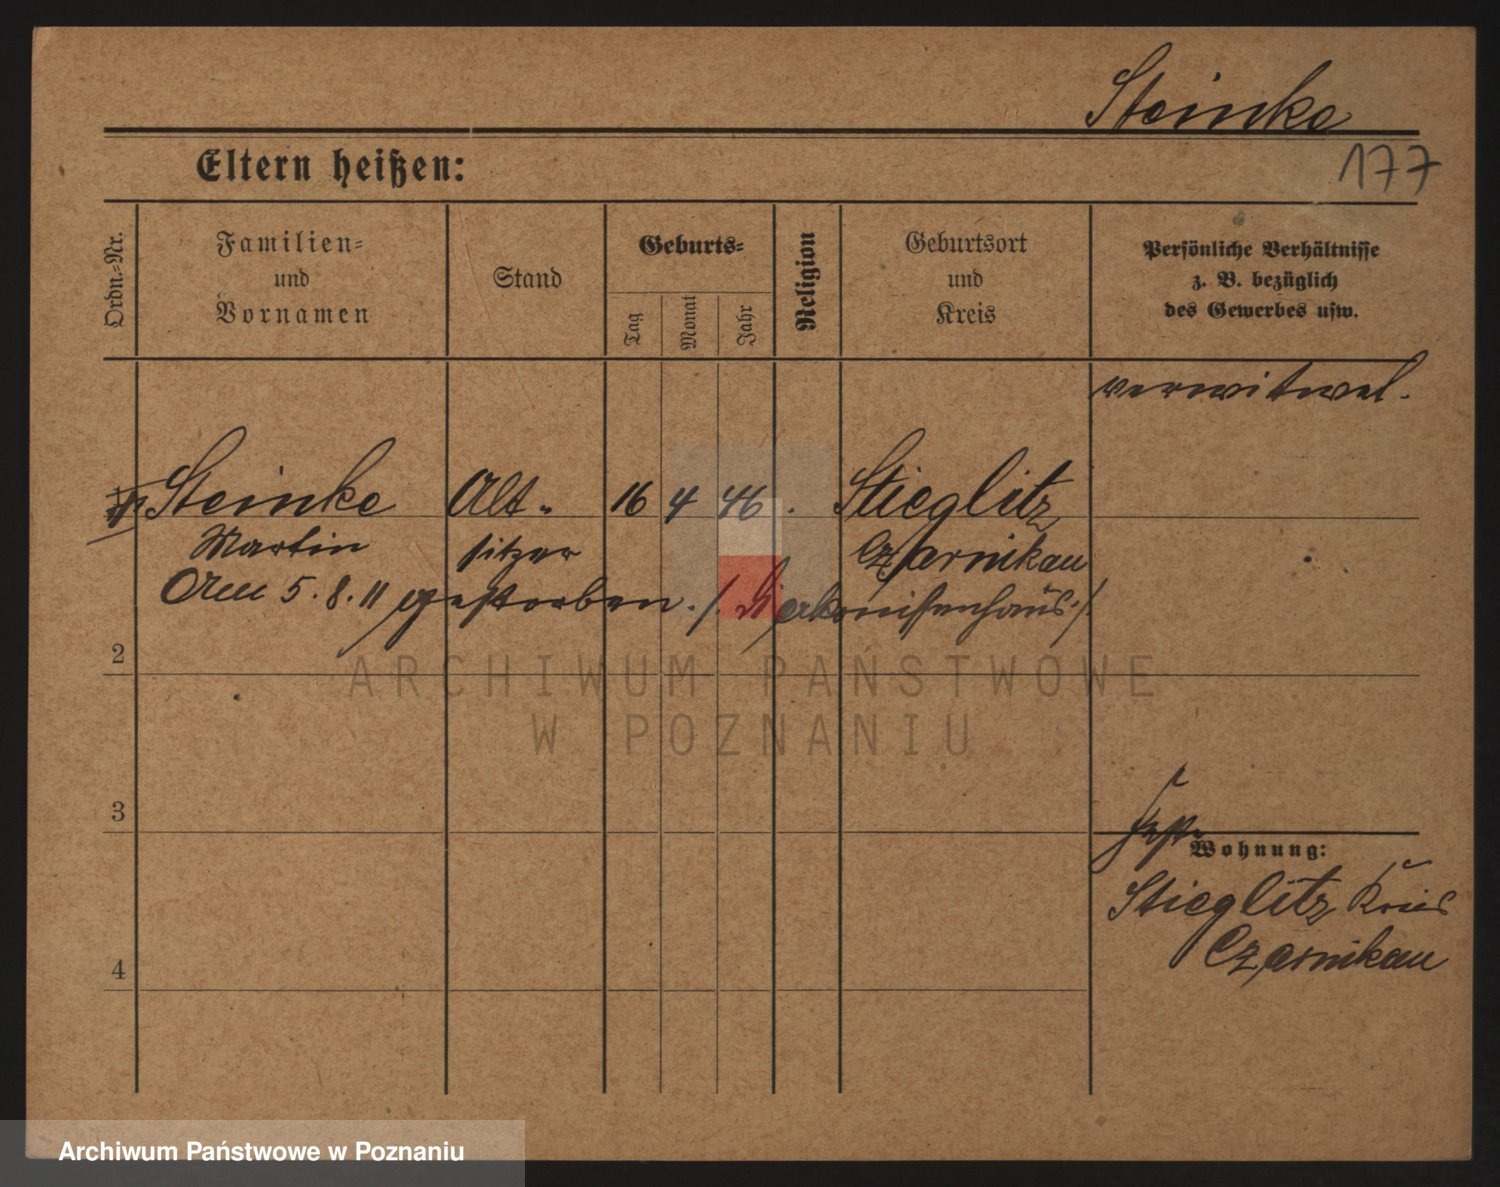 Steinke
177
Eltern heißen:
Ordn.-Nr.
Familien-
und
Vornamen
Stand
Geburts-
Tag
Monat
Jahr
Religion
Geburtsort
und
Kreis
Persönliche Verhältnisse
z. B. bezüglich
des Gewerbes usw.
verwitwet.
Steinke Alt- 16 4 46. Stieglitz
Martin sitzer Czarnikau
Am 5.8.11 gestorben ./. Diakonissenhaus ./.
2
3
4
Wohnung:
Stieglitz Kreis
Czarnikau
ARCHIWUM PAŃSTWOWE
W POZNANIU
Archiwum Państwowe w Poznaniu